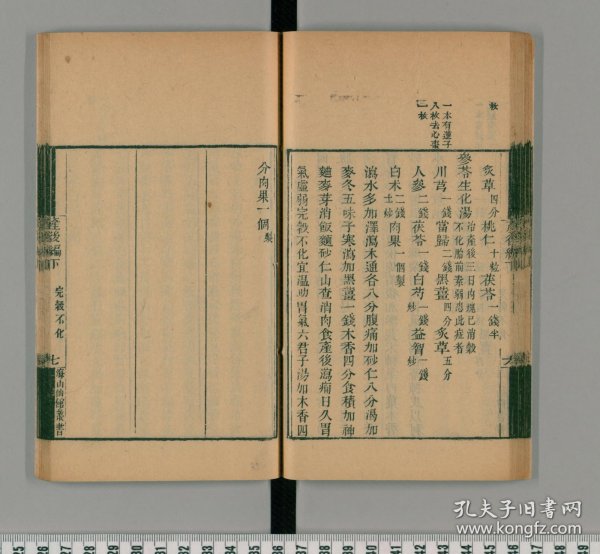 灸草四分桃仁十粒茯苓一錢半
參苓生化湯治產後三日內塊已消穀
不化胎前素弱患此症者
川芎一錢當歸二錢黑薑四分炙草五分
人參二錢茯苓一錢白芍一錢炒益智一錢炒
白术二錢土炒肉果一個製
瀉水多加澤瀉木通各八分腹痛加砂仁八分渴加
麥冬五味子寒瀉加黑薑一錢木香四分食積加神
麯麥芽消飯麵砂仁山查消肉食產後瀉痢日久胃
氣虛弱完穀不化宜溫助胃氣六君子湯加木香四
一本有蓮子
八枚去心棗
二枚
枚
分肉果一個製
產後編下
完穀不化
七
海山仙館叢書
孔夫子旧书网
www.kongfz.com
25 26 27 28 29 30 31 32 33 34 35 36 37 38 39 40 41 42 43 44 45 46 47 48 49